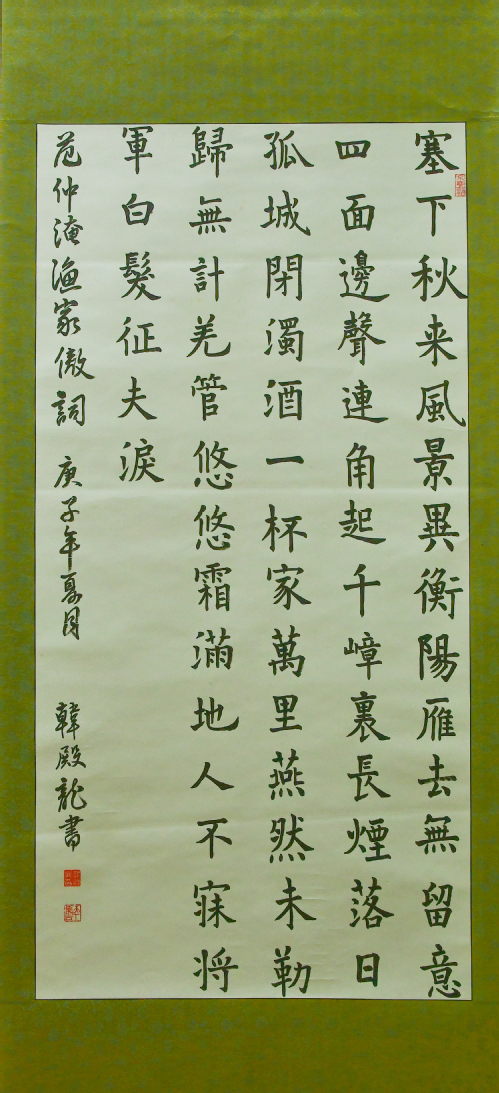 塞下秋来風景異衡陽雁去無留意
四面邊聲連角起千嶂裏長煙落日
孤城閉濁酒一杯家萬里燕然未勒
歸無計羌管悠悠霜滿地人不寐将
軍白髮征夫淚
范仲淹漁家傲詞 庚子年夏月 韓殿龍書